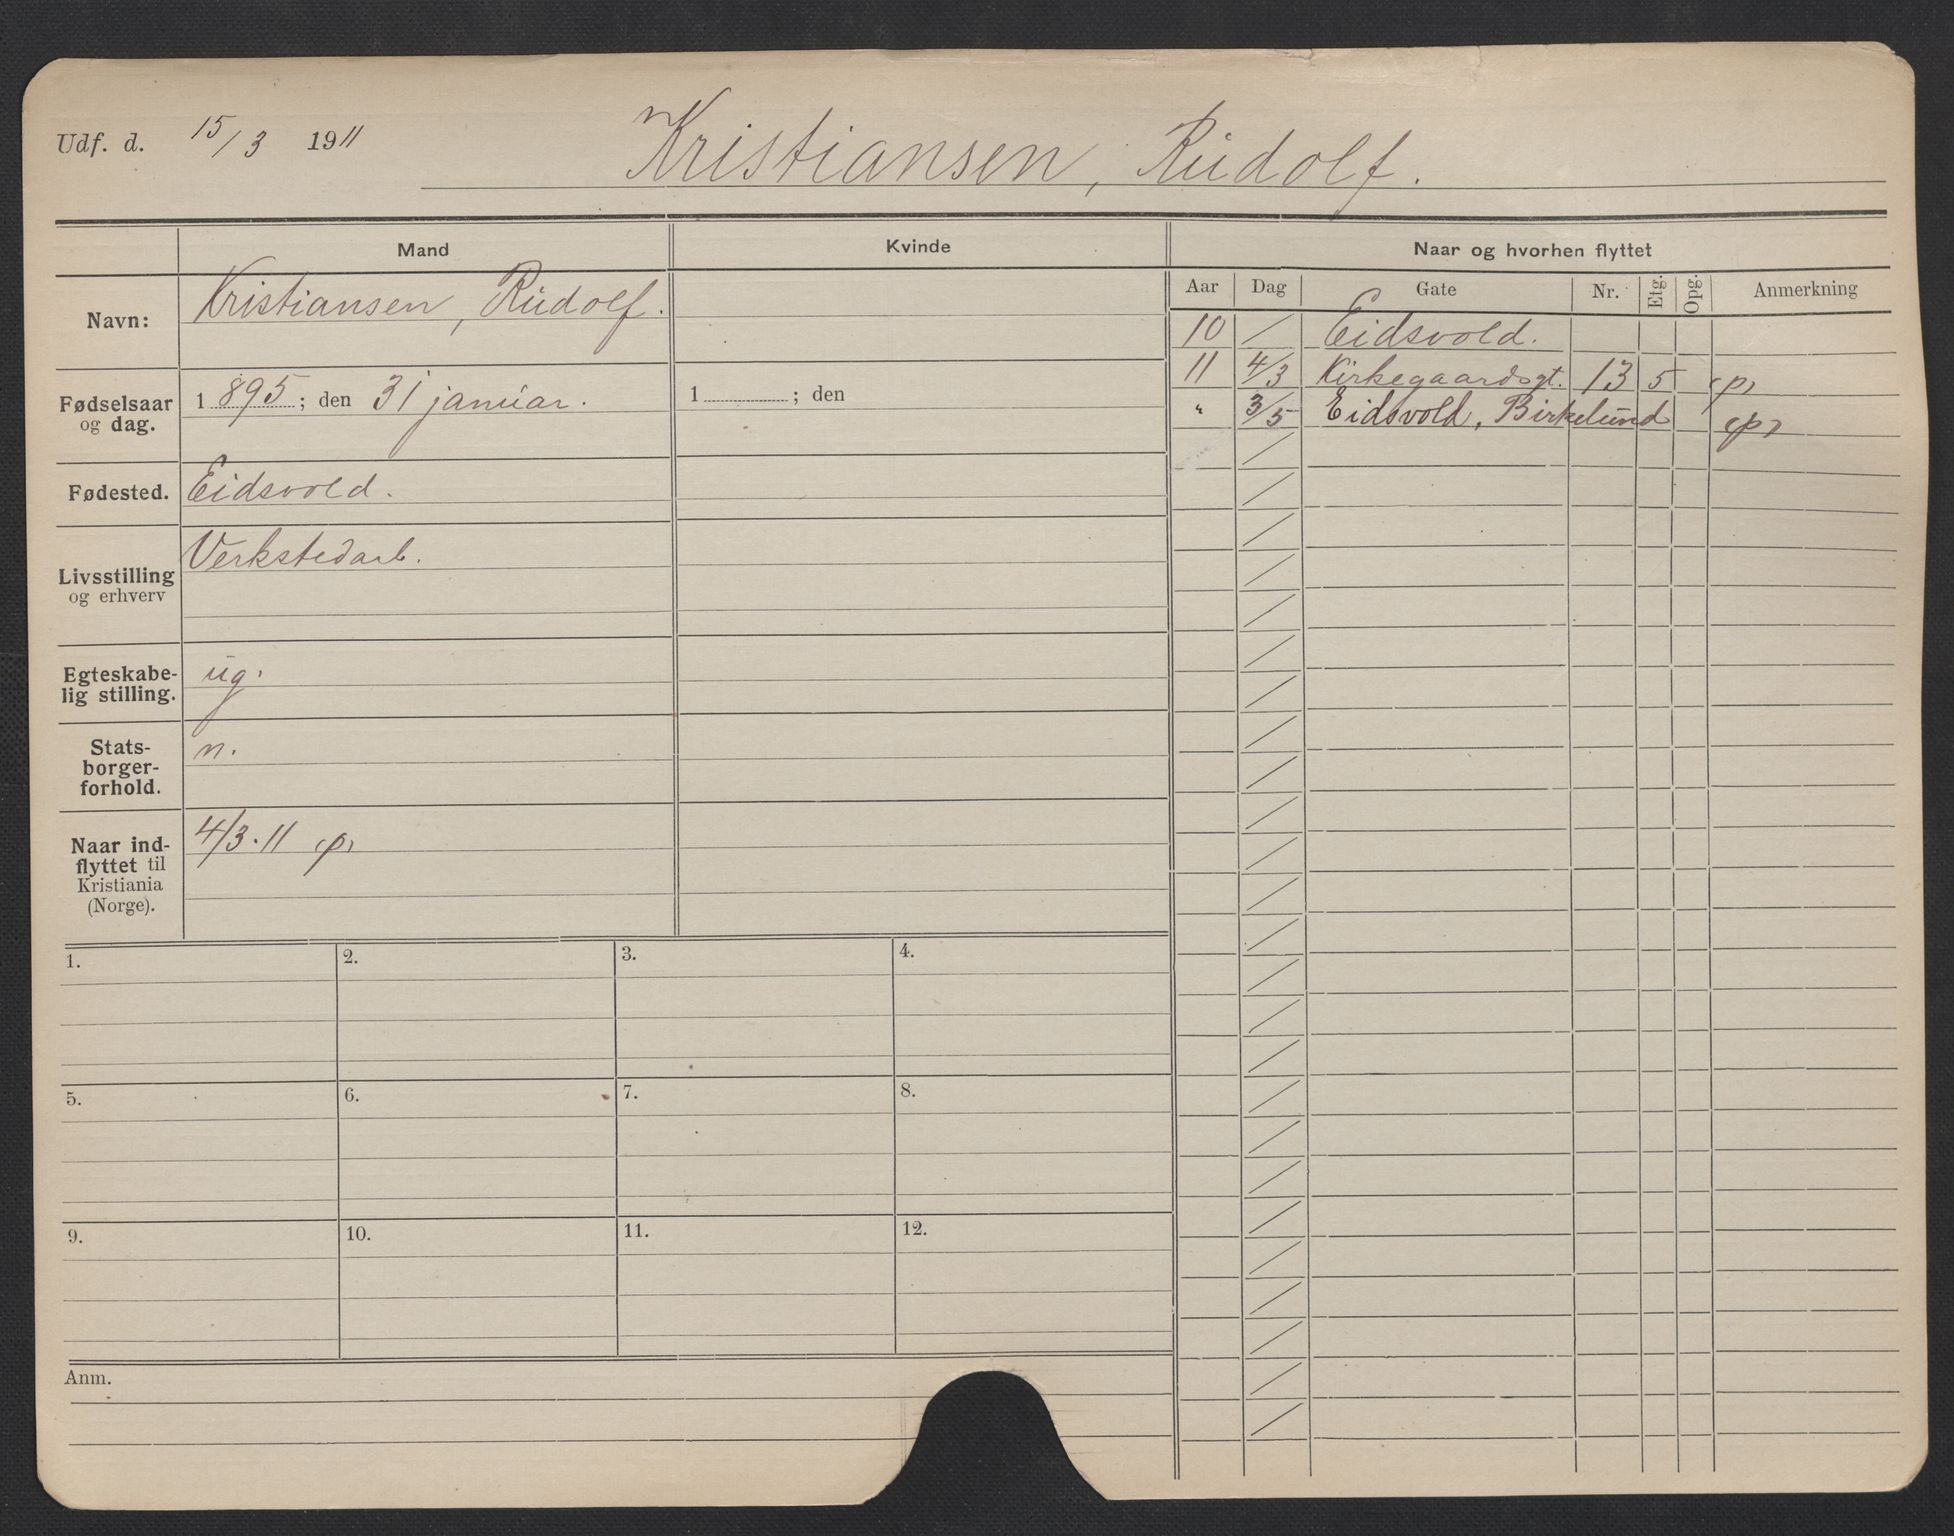 Udf. d. 15/3 1911 Kristiansen, Rudolf.
Mand
Kvinde
Naar og hvorhen flyttet
Navn: Kristiansen, Rudolf.
Fødselsaar og dag. 1 895 ; den 31 januar.
1 ; den
Fødested. Eidsvold.
Livsstilling og erhverv Verkstedarb.
Egteskabe-
lig stilling. ug.
Stats-
borger-
forhold. n.
Naar ind-
flyttet til
Kristiania
(Norge). 4/3.11
Aar Dag Gate Nr. Etg. Opg. Anmerkning
10 / Eidsvold.
11 4/3 Kirkegaardsgt. 13 5
" 3/5 Eidsvold, Birkelund
1. 2. 3. 4.
5. 6. 7. 8.
9. 10. 11. 12.
Anm.